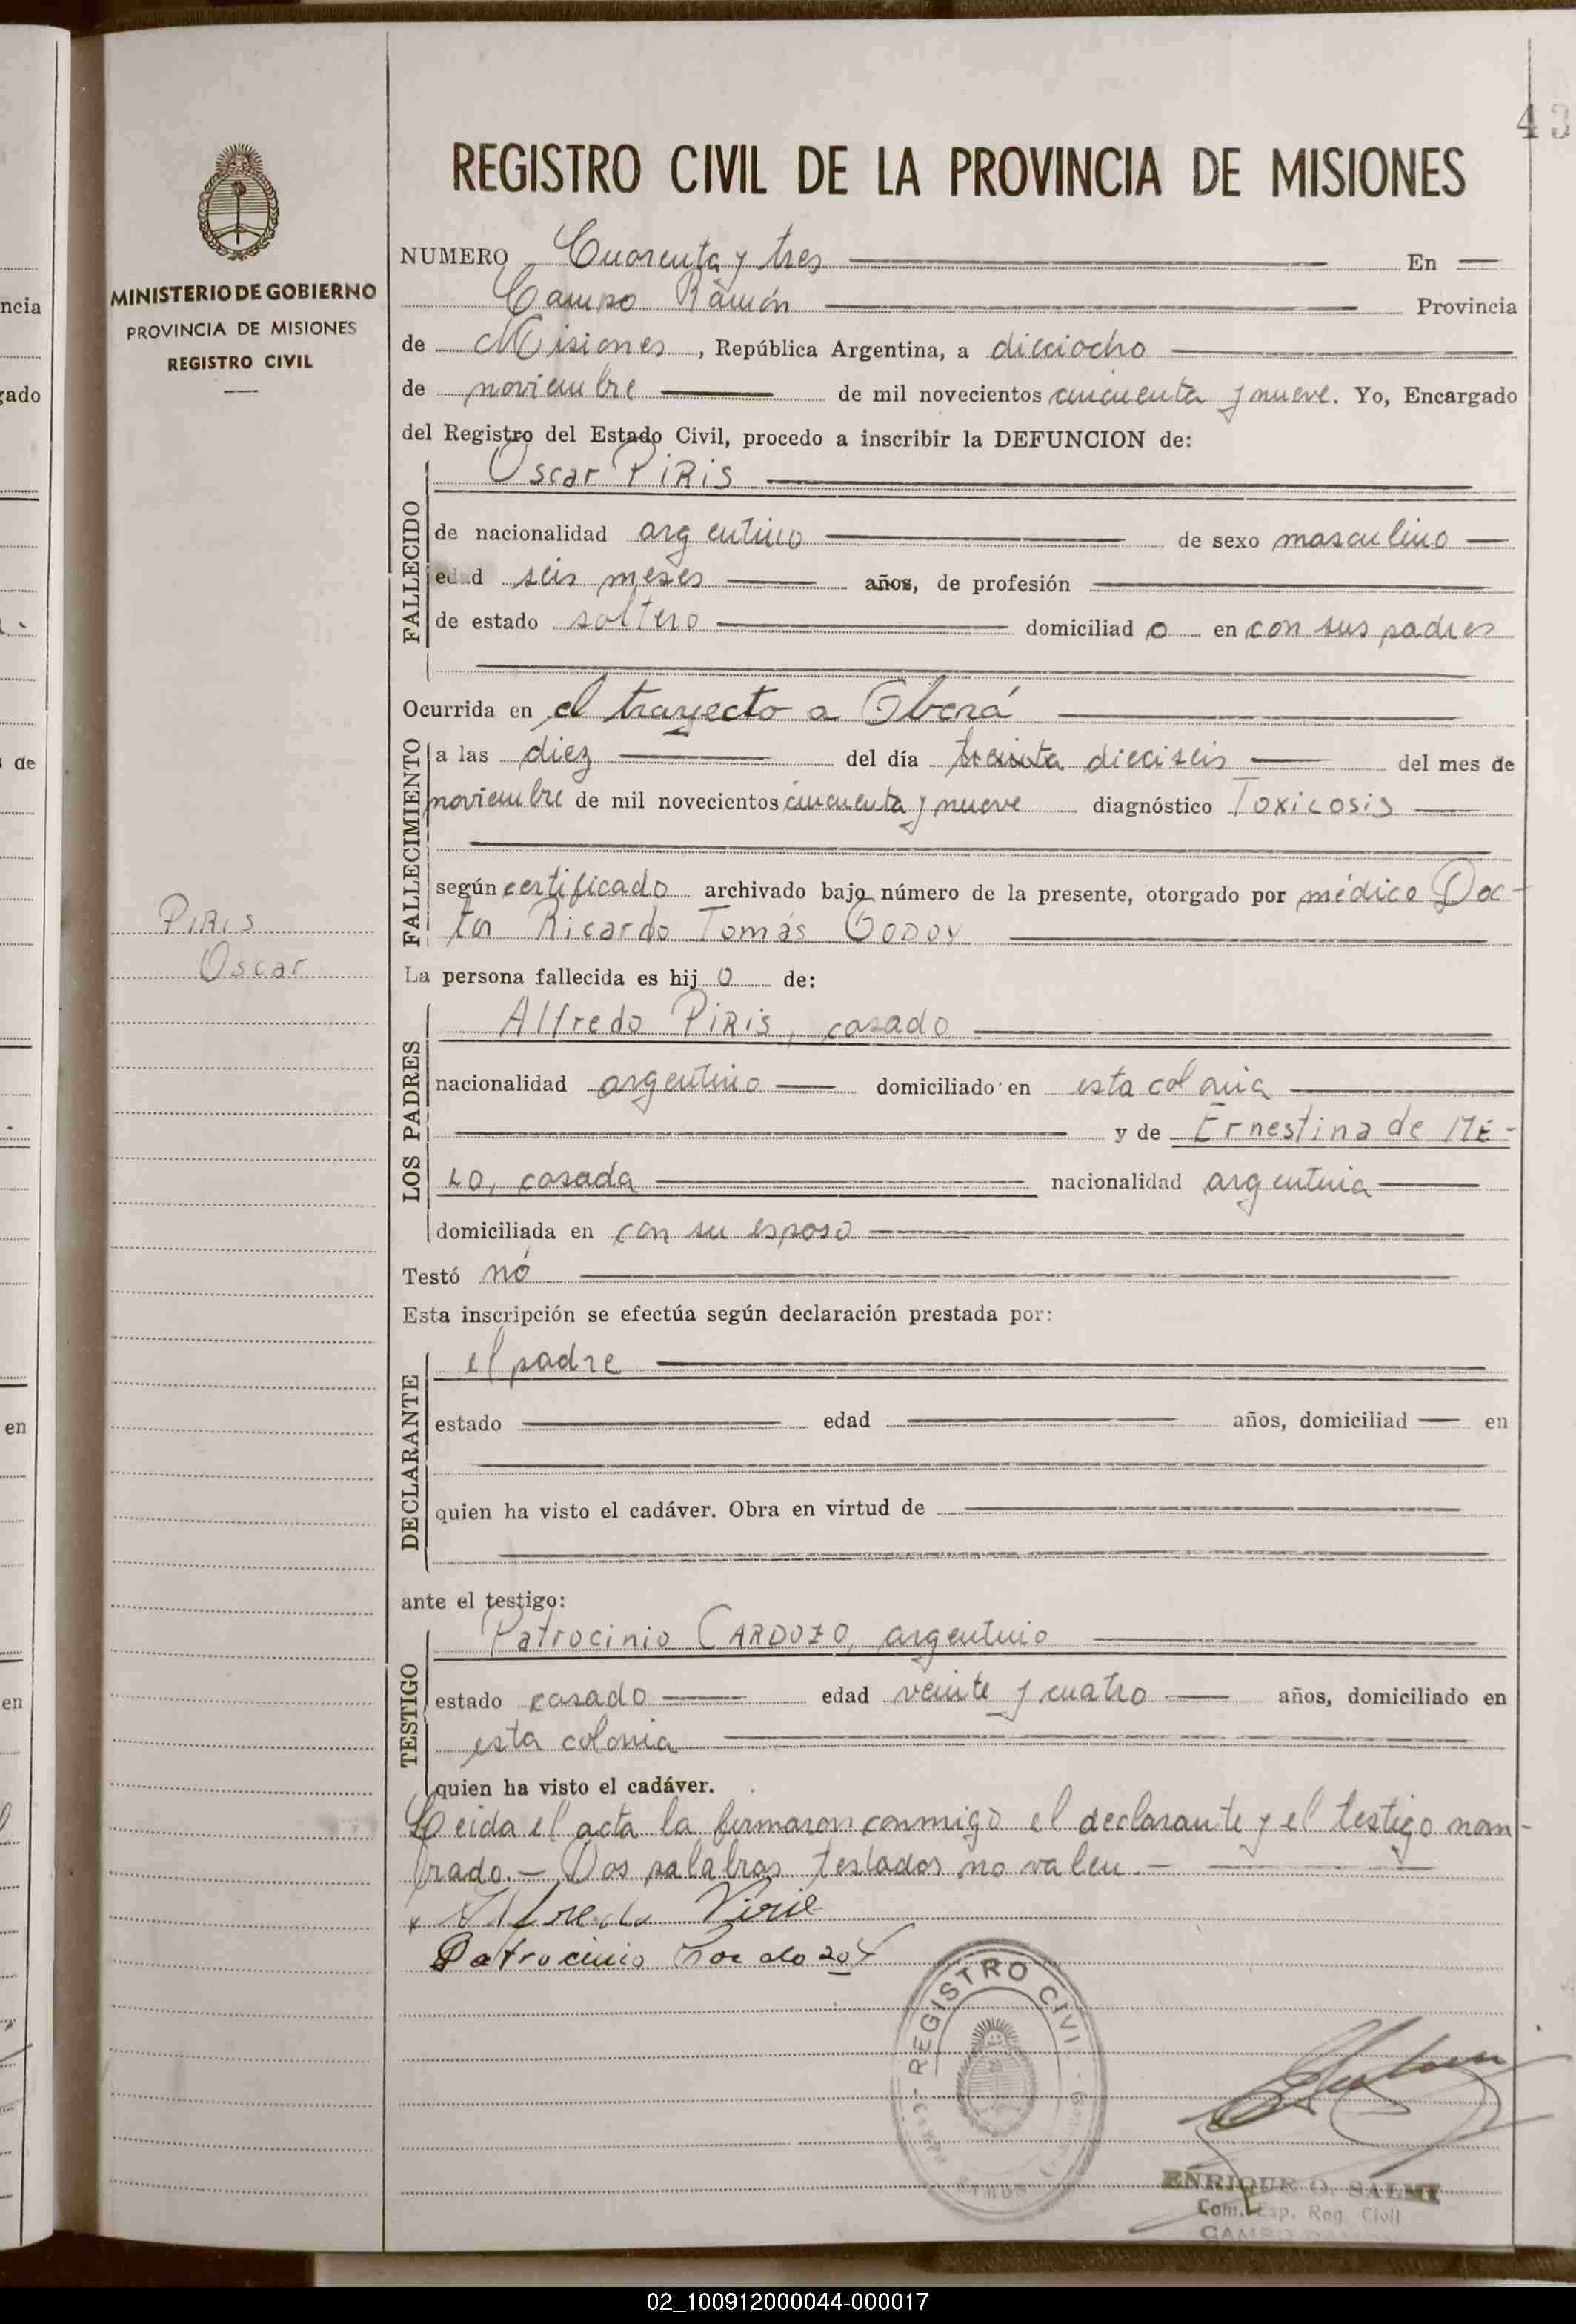 43
REGISTRO CIVIL DE LA PROVINCIA DE MISIONES
MINISTERIO DE GOBIERNO
PROVINCIA DE MISIONES
REGISTRO CIVIL
PIRIS
Oscar
NUMERO Cuarenta y tres En
Campo Ramón Provincia
de Misiones, República Argentina, a dieciocho
de noviembre de mil novecientos cincuenta y nueve. Yo, Encargado
del Registro del Estado Civil, procedo a inscribir la DEFUNCION de:
Oscar PIRIS
FALLECIDO
de nacionalidad argentino de sexo masculino
edad seis meses años, de profesión
de estado soltero domiciliado en con sus padres
Ocurrida en el trayecto a Oberá
FALLECIMIENTO
a las diez del día treinta dieciseis del mes de
noviembre de mil novecientos cincuenta y nueve diagnóstico Toxicosis
según certificado archivado bajo número de la presente, otorgado por médico Doc-
tor Ricardo Tomás GODOY
La persona fallecida es hijo de:
LOS PADRES
Alfredo PIRIS, casado
nacionalidad argentino domiciliado en esta colonia
y de Ernestina de ME-
LO, casada nacionalidad argentina
domiciliada en con su esposo
Testó nó
Esta inscripción se efectúa según declaración prestada por:
DECLARANTE
el padre
estado edad años, domiciliad en
quien ha visto el cadáver. Obra en virtud de
ante el testigo:
TESTIGO
Patrocinio CARDOZO, argentino
estado casado edad veinte y cuatro años, domiciliado en
esta colonia
quien ha visto el cadáver.
Leida el acta la firmaron conmigo el declarante y el testigo nom-
brado.- Dos palabras testados no valen.-
x Alfredo Piris
Patrocinio Cardozo
REGISTRO CIVIL
ENRIQUE O. SALMI
Com. Esp. Reg. Civil
CAMPO RAMON
ncia
gado
de
en
en
02_100912000044-000017